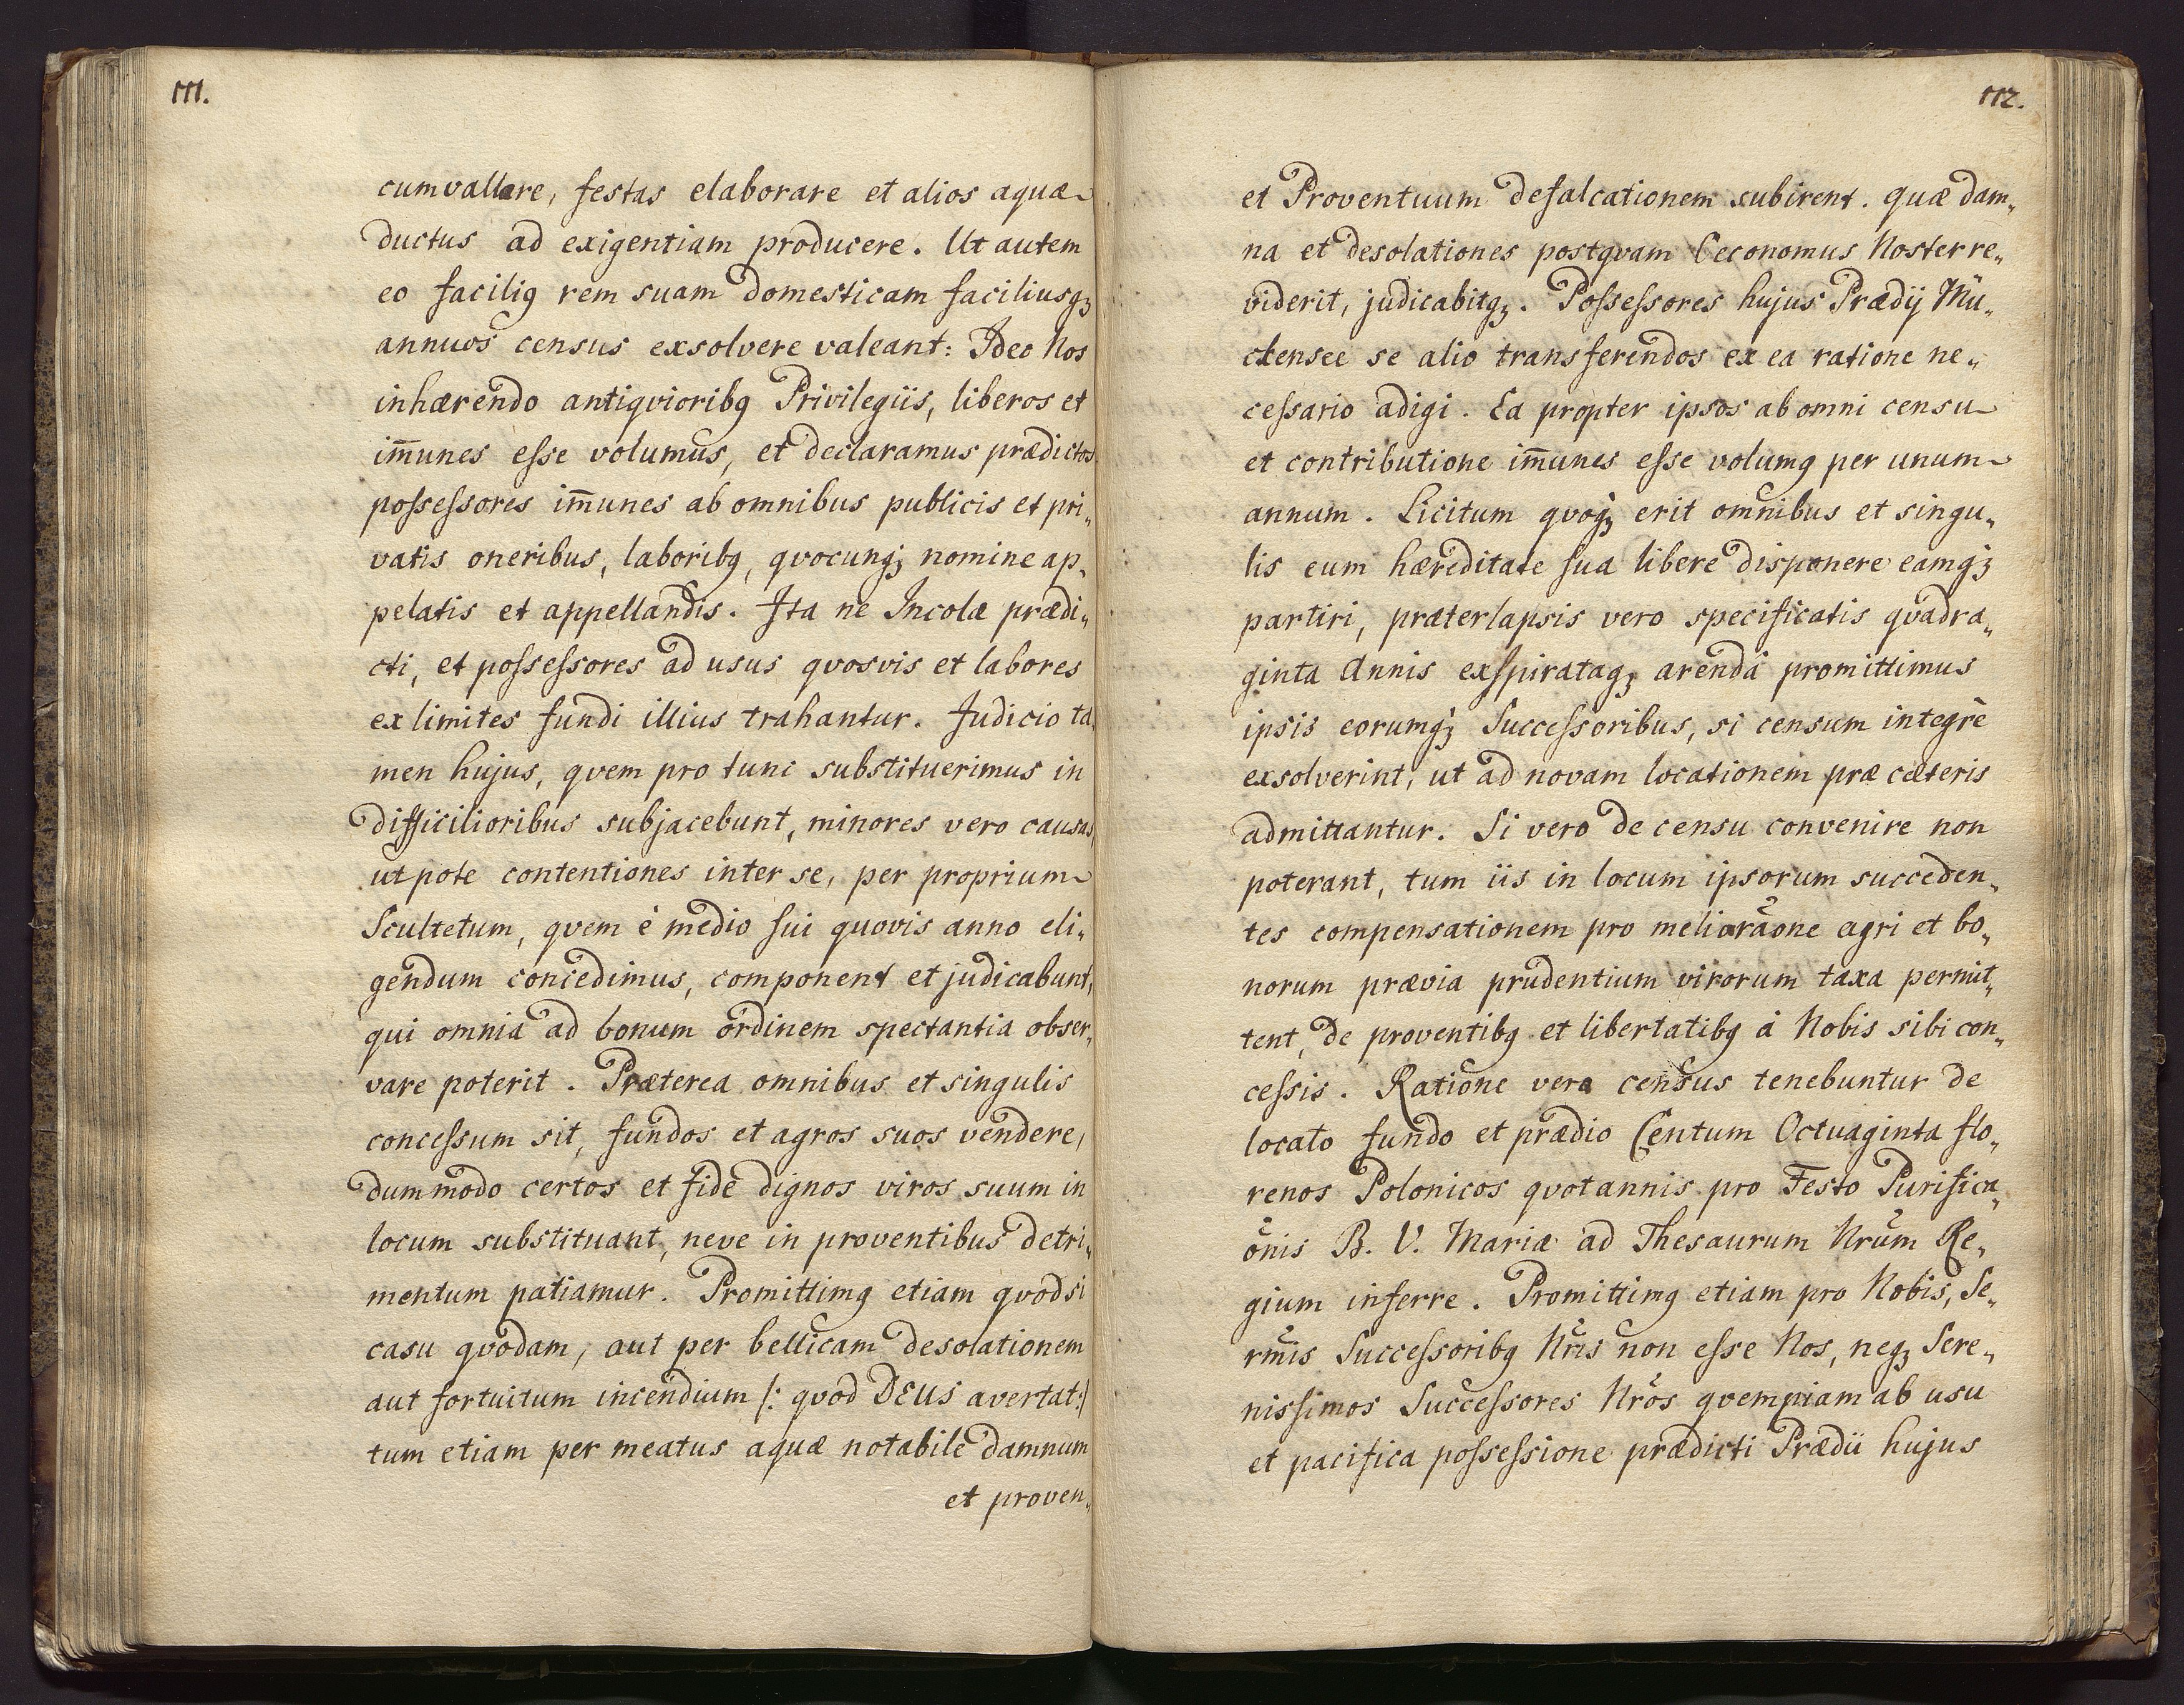 111.
cumvallare, festas elaborare et alios aquæ
ductus ad exigentiam producere. Ut autem
eo faciliꝯ rem suam domesticam faciliusqꝫ
annuos census exsolvere valeant: Ideo Nos
inhærendo antiqvioribꝯ Privilegiis, liberos et
im̄unes eſse volumus, et declaramus prædictos
poſseſsores im̄unes ab omnibus publicis et pri„
vatis oneribus, laboribꝯ, qvocunqꝫ nomine ap„
pelatis et appellandis. Ita ne Incolæ prædi„
cti, et poſseſsores ad usus qvosvis et labores
ex limites fundi illius trahantur. Judicio ta„
men hujus, qvem pro tunc substituerimus in
difficilioribus subjacebunt, minores vero causas,
ut pote contentiones inter se, per proprium
Scultetum, qvem è medio sui quovis anno eli„
gendum concedimus, component et judicabunt,
qui omnia ad bonum ordinem spectantia obser„
vare poterit. Præterea omnibus et singulis
conceſsum sit, fundos et agros suos vendere,
dummodo certos et fide dignos viros suum in
locum substituant, neve in proventibus detri„
mentum patiamur. Promittimꝯ etiam qvod si
casu qvodam, aut per bellicam desolationem
aut fortuitum incendium /: qvod DEUS avertat:/
tum etiam per meatus aquæ notabile damnum
et proven„
112.
et Proventuum defalcationem subirent. quæ dam„
na et desolationes postqvam Oeconomus Noster re„
viderit, judicabitqꝫ. Poſseſsores hujus Prædij Mü„
ckensee se alio transferendos ex ea ratione ne„
ceſsario adigi. Ea propter ipsos ab omni censu
et contributione im̄unes eſse volumꝯ per unum
annum. Licitum qvoqꝫ erit omnibus et singu„
lis eum hæreditate sua libere disponere eamqꝫ
partiri, præterlapsis vero specificatis qvadra„
ginta Annis exspirataqꝫ arendâ promittimus
ipsis eorumqꝫ Succeſsoribus, si censum integrè
exsolverint, ut ad novam locationem præ cæteris
admittantur. Si vero de censu convenire non
poterant, tum iis in locum ipsorum succeden„
tes compensationem pro meliora͠one agri et bo„
norum prævia prudentium virorum taxa permit„
tent, de proventibꝯ et libertatibꝯ à Nobis sibi con„
ceſsis. Ratione vera census tenebuntur de
locato fundo et prædio Centum Octuaginta flo„
renos Polonicos qvotannis pro Festo Purifica„
o͠nis B. V. Mariæ ad Thesaurum Nru͠m Re„
gium inferre. Promittimꝯ etiam pro Nobis, Se„
rm͠is Succeſsoribꝯ Nr͠is non eſse Nos, neqꝫ Sere„
niſsimos Succeſsores Nr͠os qvempiam ab usu
et pacifica poſseſsione prædicti Prædii hujus